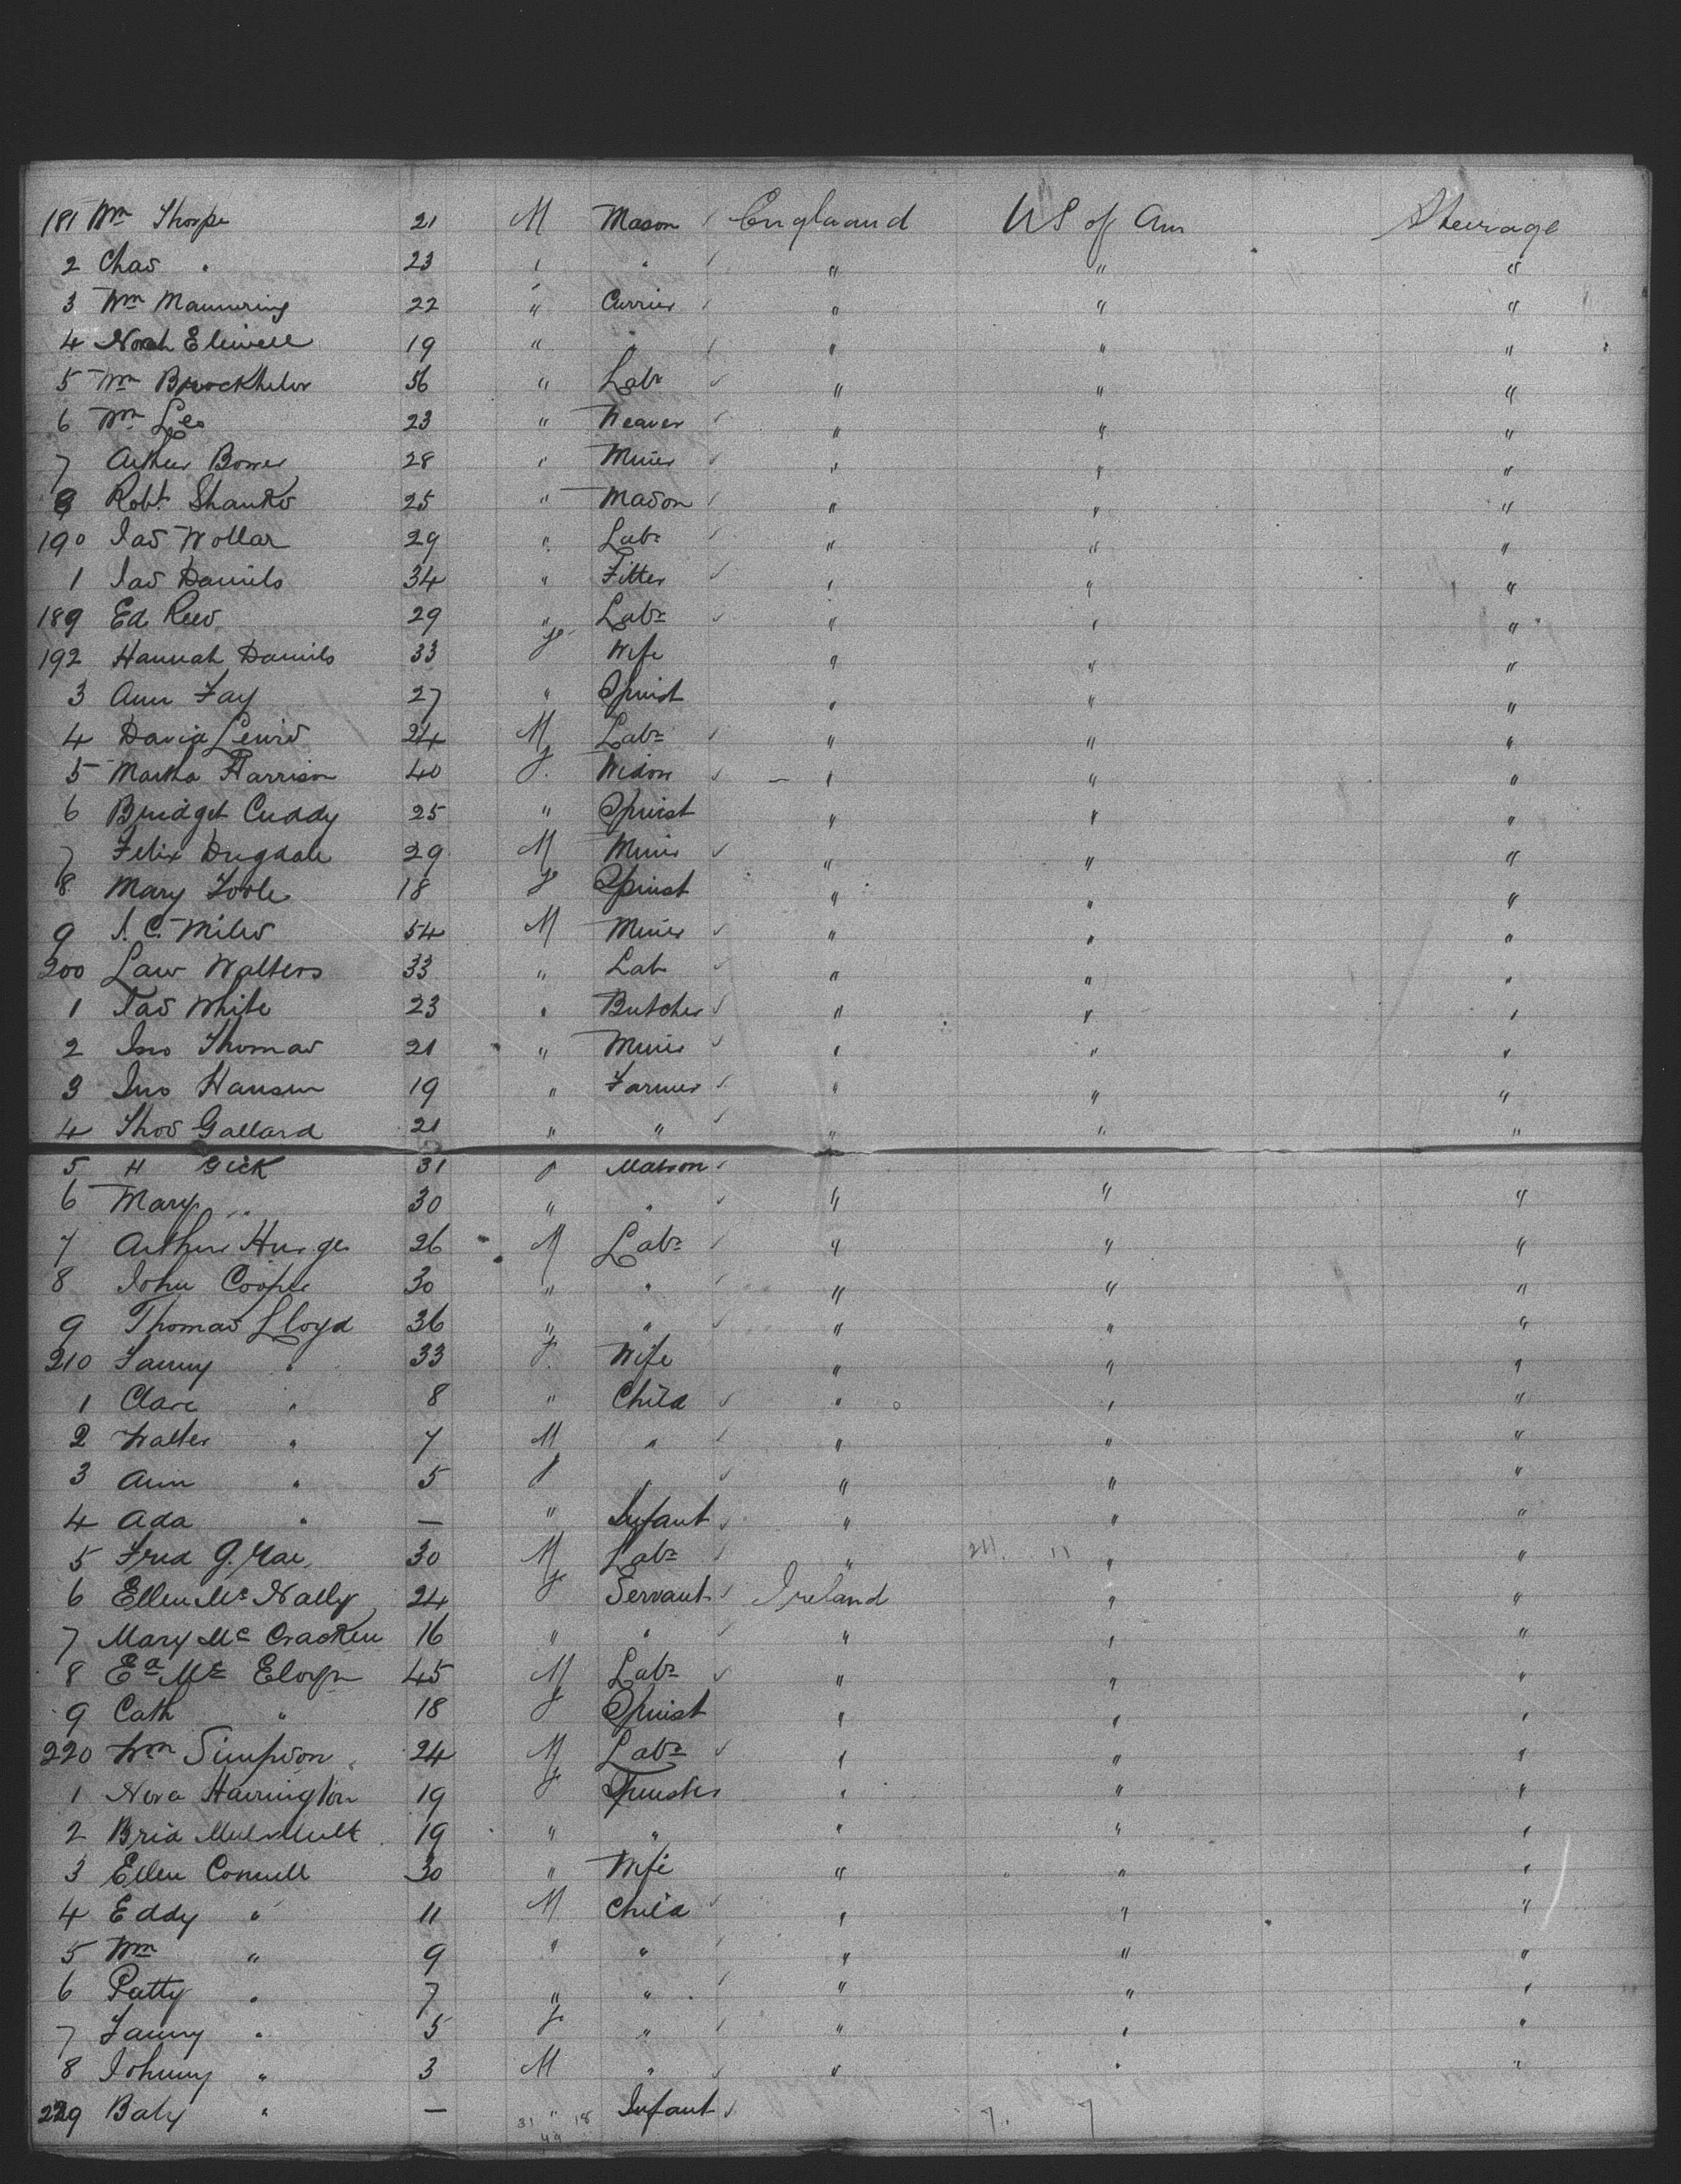 181 Wm Thorpe 21 M Mason ✓ Englaand US of Am Steerage
2 Chas " 23 " " ✓ " " "
3 Wm Mannering 22 " Currier ✓ " " "
4 Noah Eliwell 19 " " ✓ " " "
5 Wm 56 " Labr ✓ " " "
6 Wm Lee 23 " Weaver ✓ " " "
7 Arthur Bower 28 " Miner ✓ " " "
8 Robt Shanks 25 " Mason ✓ " " "
190 Jas Wollar 29 " Labr ✓ " " "
1 Jas Daniels 34 " Fitter ✓ " " "
189 Ed Rees 29 " Labr ✓ " " "
192 Hannah Daniels 33 F Wife " " "
3 Ann Fay 27 " Spinst " " "
4 David Lewis 24 M Labr ✓ " " "
5 Martha Harrison 40 F. Widow ✓ " " "
6 Bridget Cuddy 25 " Spinst " " "
7 Felix Dugdale 29 M Miner ✓ " " "
8 Mary Toole 18 F Spinst " " "
9 J. C. Miles 54 M Miner ✓ " " "
200 Law Walters 33 " Lab ✓ " " "
1 Jas White 23 " Butcher ✓ " " "
2 Jno Thomas 21 " Miner ✓ " " "
3 Jno Hansen 19 " Farmer ✓ " " "
4 Thos Gallard 21 " " ✓ " " "
5 H Gick 31 F Matron ✓
6 Mary " 30 " " ✓ " " "
7 Arthur 26 M Labr ✓ " " "
8 John Cooper 30 " " ✓ " " "
9 Thomas Lloyd 36 " " ✓ " " "
210 Fanny " 33 F. Wife " " "
1 Clare " 8 " Child ✓ " " "
2 Walter " 7 M " ✓ " " "
3 Ann " 5 F " ✓ " " "
4 Ada " — " Infant ✓ " " "
5 Fred G. 30 M Labr ✓ " " "
6 Ellen Mc Nally 24 F Servant ✓ Ireland " "
7 Mary Mc Cracken 16 " " ✓ " " "
8 Ed Mc 45 M Labr ✓ " " "
9 Cath " 18 F Spinst " " "
220 Wm Simpson 24 M Labr ✓ " " "
1 Nora Harrington 19 F Spinster " " "
2 Brid 19 " " " " "
3 Ellen Connell 30 " Wife " " "
4 Eddy " 11 M Child ✓ " " "
5 Wm " 9 " " ✓ " " "
6 Patty " 7 " " ✓ " " "
7 Fanny " 5 F " ✓ " " "
8 Johnny " 3 M " ✓ " " "
229 Baby " — " Infant ✓
31 18
49